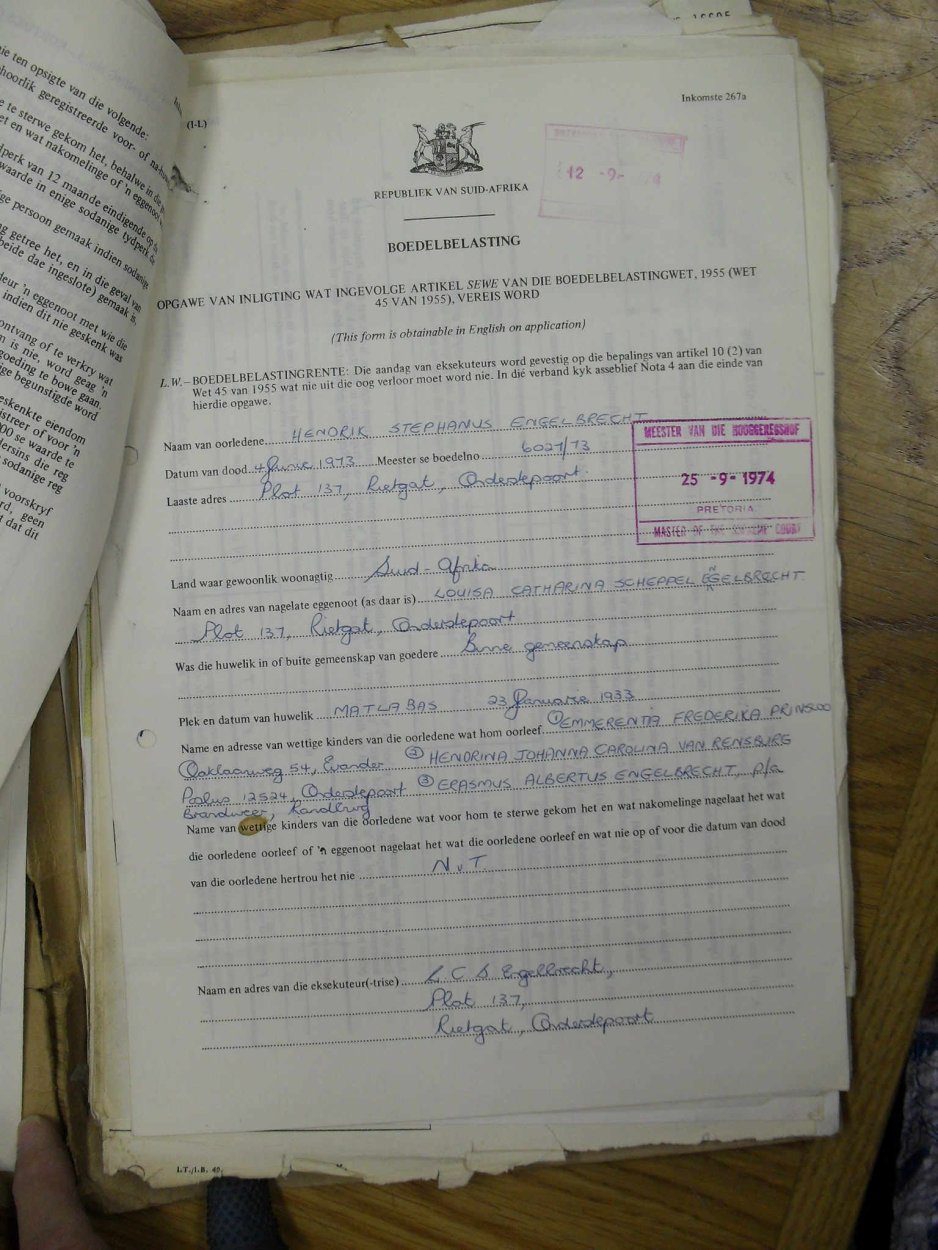 ie ten opsigte van die volgende:
hoorlik geregistreerde voor- of na-
e te sterwe gekom het, behalwe in die
et en wat nakomelinge of 'n eggenoot
dperk van 12 maande eindigende op
waarde in enige sodanige tydperk
ge persoon gemaak indien sodanige
g getree het, en in die geval van
beide dae ingeslote) gemaak is,
deur 'n eggenoot met wie die
indien dit nie geskenk was
ontvang of te verkry wat
n is nie, word geag 'n
goeding te bowe gaan.
ge begunstigde word
eskenkte eiendom
streer of voor 'n
000 se waarde te
dersins die reg
sodanige reg
voorskryf
rd, geen
d dat dit
(I-L)
Inkomste 267a
12 -9-
REPUBLIEK VAN SUID-AFRIKA
BOEDELBELASTING
OPGAWE VAN INLIGTING WAT INGEVOLGE ARTIKEL SEWE VAN DIE BOEDELBELASTINGWET, 1955 (WET
45 VAN 1955), VEREIS WORD
(This form is obtainable in English on application)
L.W.–BOEDELBELASTINGRENTE: Die aandag van eksekuteurs word gevestig op die bepalings van artikel 10 (2) van
Wet 45 van 1955 wat nie uit die oog verloor moet word nie. In dié verband kyk asseblief Nota 4 aan die einde van
hierdie opgawe.
Naam van oorledene HENDRIK STEPHANUS ENGELBRECHT
Datum van dood 4 Junie 1973 Meester se boedelno 6027/73
Laaste adres Plot 137, Rietgat, Onderstepoort
MEESTER VAN DIE HOOGGEREGSHOF
25 -9- 1974
PRETORIA
MASTER OF THE SUPREME COURT
Land waar gewoonlik woonagtig Suid-Afrika
Naam en adres van nagelate eggenoot (as daar is) LOUISA CATHARINA SCHEPPEL ENGELBRECHT
Plot 137, Rietgat, Onderstepoort
Was die huwelik in of buite gemeenskap van goedere Binne gemeenskap
Plek en datum van huwelik MATLABAS 23 Januarie 1933
Name en adresse van wettige kinders van die oorledene wat hom oorleef ① EMMERENTIA FREDERIKA PRINSLOO
Ooklaanweg 54, Evander ② HENDRINA JOHANNA CAROLINA VAN RENSBURG
Posbus 12524, Onderstepoort ③ ERASMUS ALBERTUS ENGELBRECHT, p/a
Brandweer, Randburg
Name van wettige kinders van die oorledene wat voor hom te sterwe gekom het en wat nakomelinge nagelaat het wat
die oorledene oorleef of 'n eggenoot nagelaat het wat die oorledene oorleef en wat nie op of voor die datum van dood
van die oorledene hertrou het nie N v T
Naam en adres van die eksekuteur(-trise) L C S Engelbrecht,
Plot 137,
Rietgat, Onderstepoort
I.T./I.B. 40.